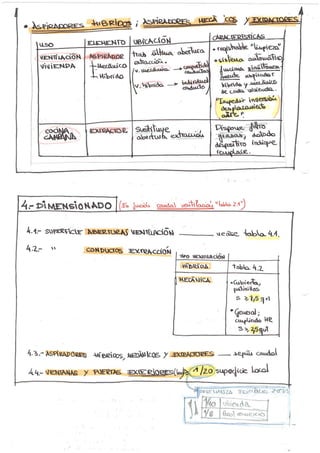 • ASPIRADORES HIBRIDOS ; ASPIRADORES MECÁ COS Y EXTRACTORES
USO
ELEMENTO
UBICACIÓN
CARACTERÍSTICAS
VENTILACIÓN
VIVIENDA
ASPIRADOR
Mecánico
Híbrido
tras última abertura
extracción.
v. mecánica → compartido
conductos
v. híbrida → individual
conducto
• registrable "limpieza"
• sistema automático
funcionen simultánea-
mente aspirador
híbrido y mecánico
de cada vivienda.
"Impedir inversión
desplazamiento
aire".
COCINA
CAMPANA
EXTRACTOR
Sustituye
abertura extracción
Dispone filtro
grasas,
dispositivo indique
reemplazar.
4.- DIMENSIONADO (En función caudal ventilación "tabla 2.1")
4.1- SUPERFICIE ABERTURAS VENTILACIÓN tabla 4.1.
4.2- " CONDUCTOS EXTRACCIÓN
TIPO VENTILACIÓN
HÍBRIDA
tabla 4.2
MECÁNICA
• Cubierta,
patinillos
S ≥ 2,5 qvt
• General;
cumpliendo HR
S ≥ 2,5 qvt
4.3.- ASPIRADORES HÍBRIDOS, MECÁNICOS Y EXTRACTORES según caudal
4.4- VENTANAS Y PUERTAS EXTERIORES 1/20 superficie local
1/10 vivienda